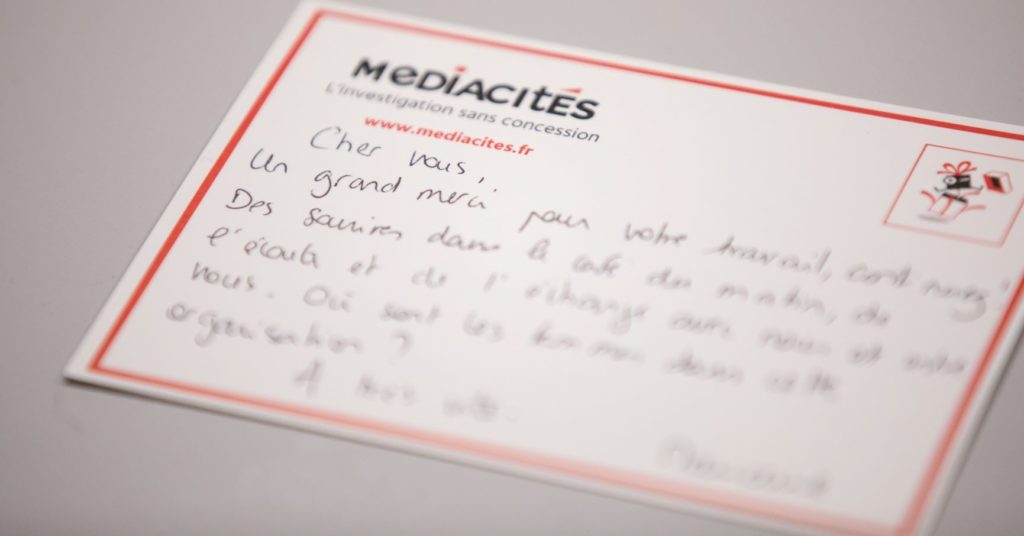 MEDIACITÉS
L'investigation sans concession
www.mediacites.fr
Cher vous,
Un grand merci pour votre travail, continuez!
Des sourires dans le café du matin, de
l'écoute et de l'échange avec nous et entre
nous. Où sont les femmes dans cette
organisation ?
A très vite.